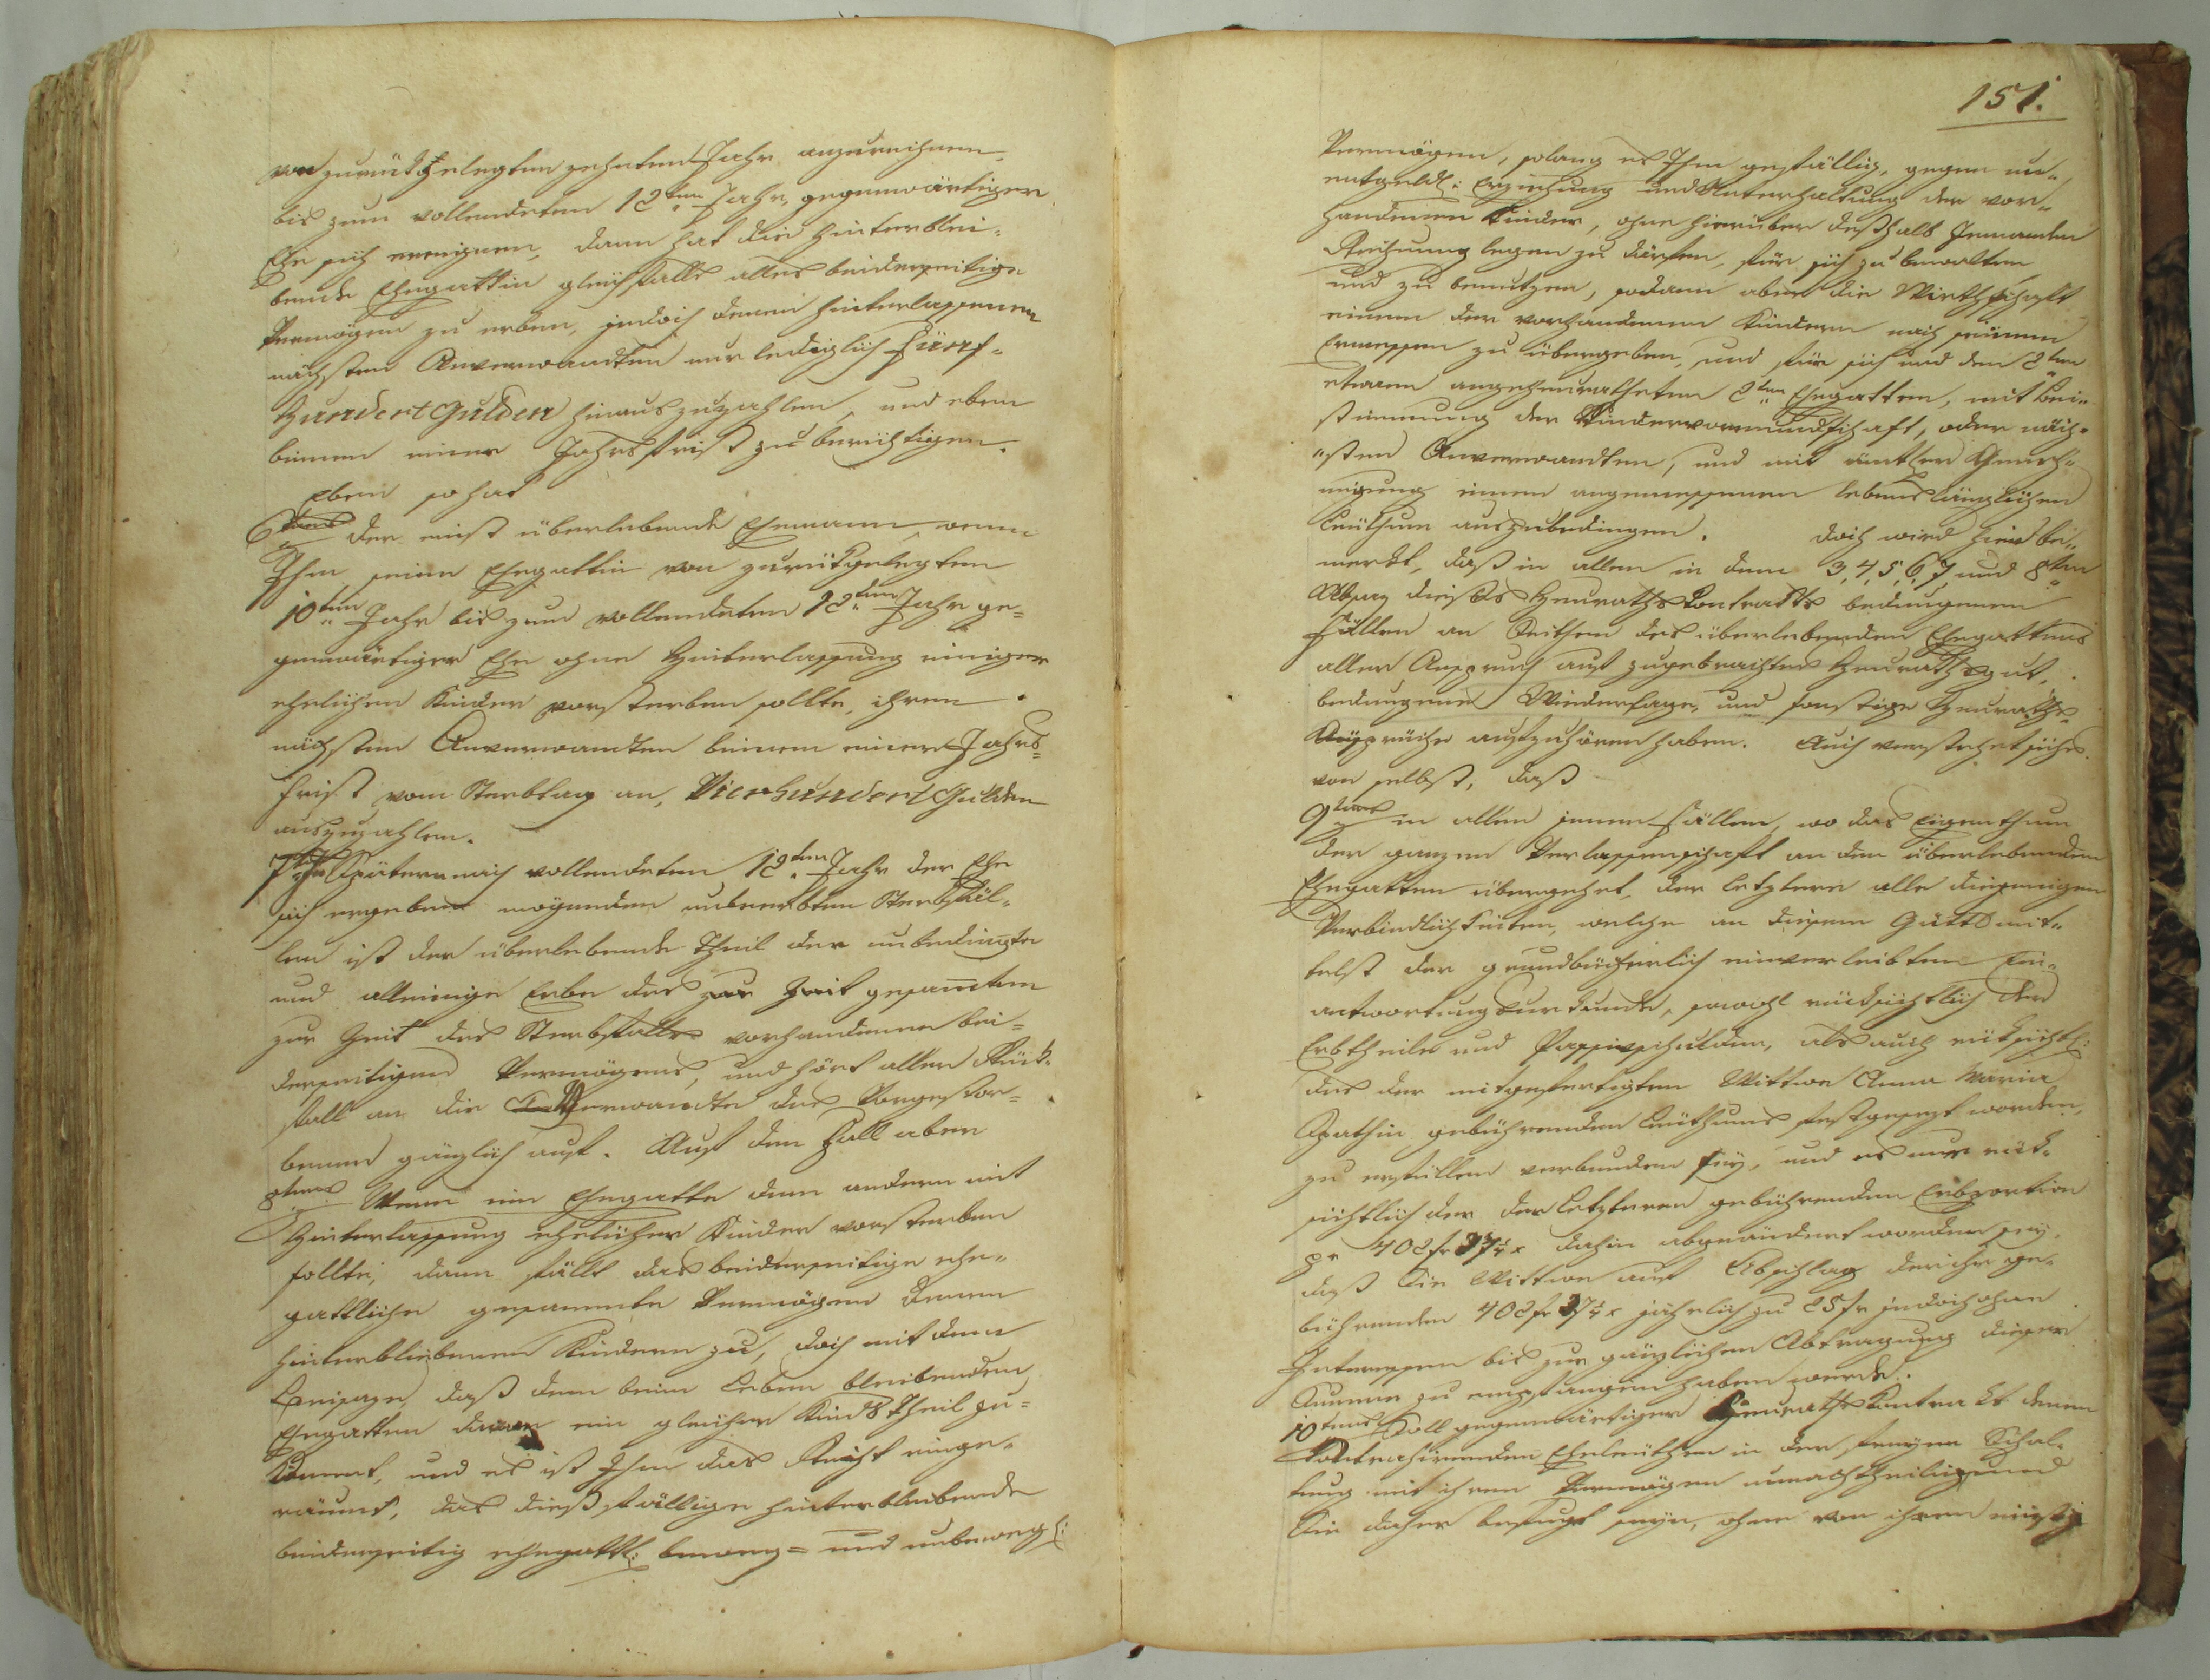 von zurückgelegten zehnten Jahr anzurechnen
bis zum vollendeten 12ten Jahr, gegenwärtiger
Ehe sich ereignen, dann hat die hinterblei-
bende Ehegattin gleichfalls alles beiderseitige
Vermögen zu erben, jedoch denen hinterlassenen
nächsten Anverwandten nur lediglich Fünf-
Hundert Gulden hinauszuzahlen, und eben
binnen einer Jahrsfrist zu berichtigen.
Eben so hat
6tens der einst überlebende Ehemann, wenn
Ihm seine Ehegattin von zurückgelegten
10ten Jahr bis zum vollendeten 12ten Jahr ge-
genwärtiger Ehe ohne Hinterlassung einiger
ehelichen Kinder vorsterben sollte, ihren
nächsten Anverwandten binnen einer Jahrs-
frist vom Sterbtag an, Vierhundert Gulden
auszuzahlen.
7tens Spätern nach vollendeten 12ten Jahr der Ehe
sich ergeben mögenden unbeerbten Sterbfäl-
len ist der überlebende Theil der unbedingte
und alleinige Erbe des zur Zeit gesammten
zur Zeit des Sterbfalls vorhandenen bei-
derseitigen Vermögens, und hört aller Rück-
fall an die Verwandte des Vorgestor-
benen gänzlich auf. Auf den Fall aber
8tens Wenn ein Ehegatte dem andern mit
Hinterlassung ehelicher Kinder vorsterben
sollte, dann fällt das beiderseitige ehe-
gattliche gesammte Vermögen denen
hinterbliebenen Kindern zu, doch mit dem
Beisaze, daß dem beim Leben bleibenden
Ehegatten davon ein gleicher Kinds Theil zu-
kömmt, und es ist Ihm das Recht einge-
räumt, das dießfällige hinterbleibende
beiderseitig ehegattl: beweg= und unbewegl:
151.
Vermögen, solang es Ihm gefällig, gegen un-
entgeldl: Erziehung und Unterhaltung der vor-
handenen Kinder, ohne hierüber deßhalb Jemanden
Rechnung legen zu därfen, für sich zu verwalten
und zu benutzen, sodann aber die Wirthschaft
einem der vorhandenen Kindern nach seinem
Ermessen zu übergeben, und für sich und den 2ten
etwann angeheuratheten 2ten Ehegatten, mit Bei-
stimmung der Kindervormundschaft, oder näch-
sten Anverwandten, und mit ämtlher Geneh-
migung einen angemessenen lebenslänglichen
Leuthum auszubedingen. Doch wird hier be-
merkt, daß in allen in dem 3, 4, 5, 6, 7 und 8ten
Absaz dieses Heuraths Kontrakts bedungenen
Fällen an Seithen des überlebenden Ehegattens
aller Anspruch auf zugebrachtes Heurathsgut,
bedungene Wiederlage, und sonstige Heuraths
Ansprüche aufzuhören haben. Auch verstehet sichs
von selbst, daß
9tens in allen jenen Fällen, wo das Eigenthum
der ganzen Verlassenschaft an den überlebenden
Ehegatten übergehet, der letztere alle diejenigen
Verbindlichkeiten, welche an diesem Gutt mit-
telst der grundbücherlich einverleibten Ein-
antwortungsurkunde, sowohl rücksichtlich der
Erbtheile und Passivschulden, als auch rücksichtl:
des der mitgefertigten Wittwe Anna Maria
gebührenden Leuthums festgesezt worden,
zu erfüllen verbunden sey, und es nur rück-
sichtlich der der letzteren gebührenden Erbportion
pr 402 fr 37¼ x dahin abgeändert worden sey,
daß die Wittwe auf Abschlag der ihr ge-
bührenden 402 fr 37¼ x jährlich zu 25 fr jedoch ohne
Interessen bis zur gänzlichen Abtragung dieser
Summe zu empfangen haben werde.
10tens Soll gegenwärtiger Heuraths Kontrakt denen
Kontrahirenden Eheleuthen in der freyen Schal-
tung mit ihrem Vermögen unnachtheilig und
Sie daher befugt seyn, ohne von ihrem einstig